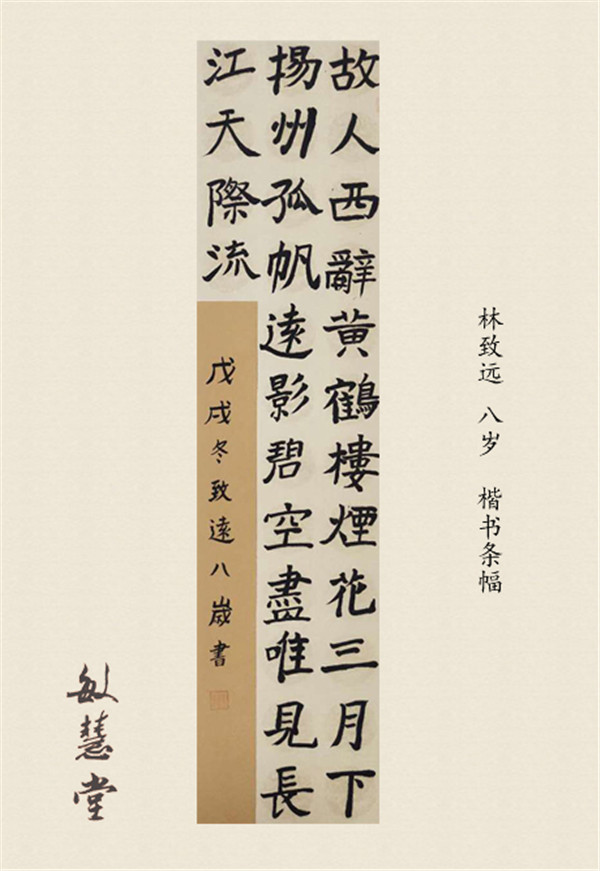 故人西辭黄鶴樓煙花三月下
揚州孤帆遠影碧空盡唯見長
江天際流
戊戌冬致遠八歲書
林致远 八岁 楷书条幅
敏慧堂